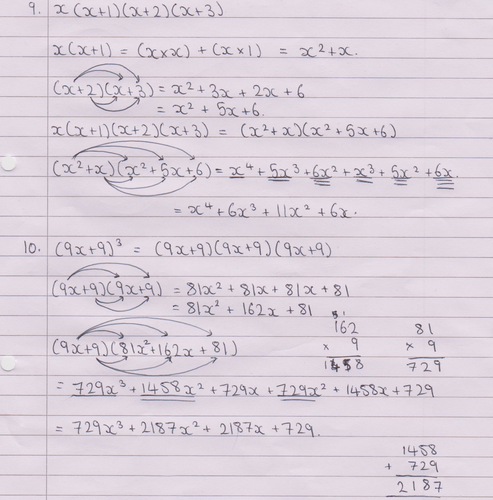 9. x(x+1)(x+2)(x+3)
x(x+1) = (x×x) + (x×1) = x²+x.
(x+2)(x+3) = x² + 3x + 2x + 6
= x² + 5x + 6.
x(x+1)(x+2)(x+3) = (x²+x)(x²+5x+6)
(x²+x)(x²+5x+6) = x⁴ + 5x³ + 6x² + x³ + 5x² + 6x.
= x⁴ + 6x³ + 11x² + 6x.
10. (9x+9)³ = (9x+9)(9x+9)(9x+9)
(9x+9)(9x+9) = 81x² + 81x + 81x + 81
= 81x² + 162x + 81
(9x+9)(81x²+162x+81)
5 1
162
× 9
1458
81
× 9
729
= 729x³ + 1458x² + 729x + 729x² + 1458x + 729
= 729x³ + 2187x² + 2187x + 729.
1458
+ 729
2187